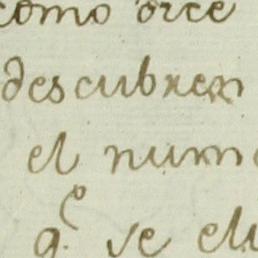 como
descubren
el num
q.e se el